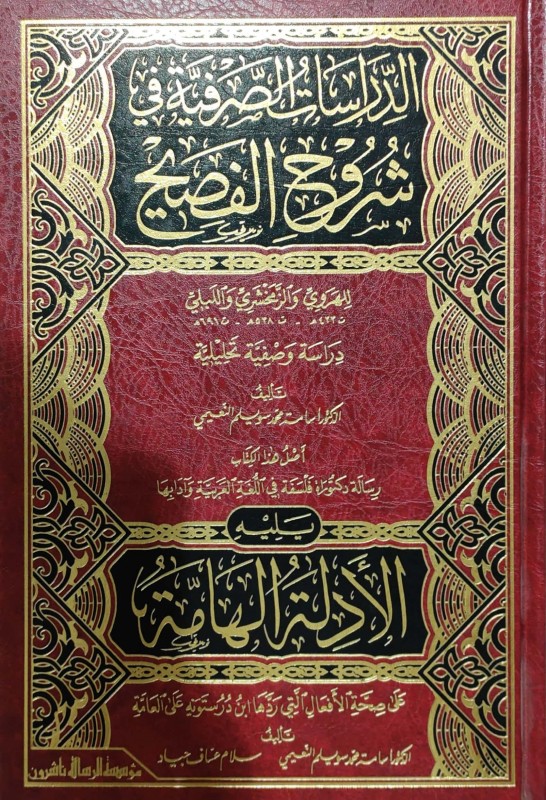 الدِّرَاسَاتُ الصَّرْفِيَّة في
شُرُوحِ الفَصِيحِ
للهَرَوِيّ وَالزَّمَخْشَرِيّ وَاللَّبْلِيّ
ت٤٣٣هـ - ت٥٣٨هـ - ت٦٩١هـ
دِرَاسَة وَصْفِيَّة تَحْلِيلِيَّة
تَأليفُ
الدكتور أسامة محمد سويلم النعيمي
أَصْلُ هٰذَا الكِتَابِ
رِسَالَة دكتُورَاه فَلْسَفَة في اللُّغَة العَرَبِيَّة وَآدَابِهَا
يَلِيْهِ
الأَدِلَّةُ الهَامَّةُ
عَلَى صِحَّةِ الأَفْعَالِ الَّتي رَدَّهَا ابنُ دُرُسْتَوَيْهِ عَلَى العَامَّةِ
تَأليفُ
الدكتور أسامة محمد سويلم النعيمي سلام عساف جياد
مؤسسة الرسالة ناشرون